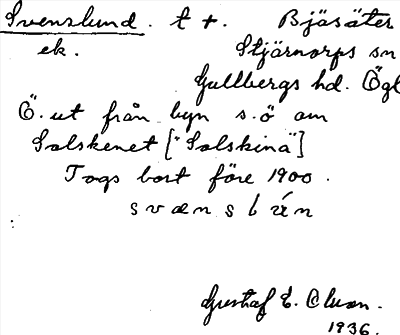 Svenslund. t +. Bjäsäter
ek. Stjärnorps sn
Gullbergs hd. Ögl
Ö. ut från byn s.ö om
Solskenet ["Solskina"]
Togs bort före 1900.
Gustaf E. Olson.
1936.